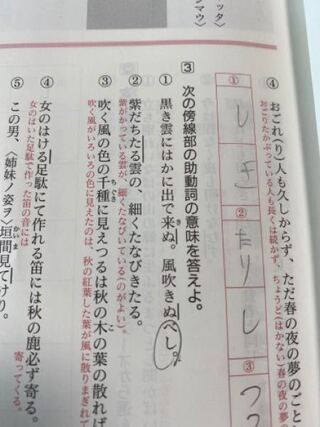 ④ おごれ(り)人も久しからず、ただ春の夜の夢のごと
おごりたかぶっている人も長くは続かず、ちょうど(はかない)春の夜の夢の
① しき
② たりし
③ つ
3 次の傍線部の助動詞の意味を答えよ。
① 黒き雲にはかに出で来ぬ。風吹きぬべし。
② 紫だちたる雲の、細くたなびきたる。
紫がかっている雲が、細くたなびいている(のがよい)。
③ 吹く風の色の千種に見えつるは秋の木の葉の散れば
吹く風がいろいろの色に見えたのは、秋の紅葉した葉が風に散りまぎれて
④ 女のはける足駄にて作れる笛には秋の鹿必ず寄る。
女のはいた足駄で作った笛の音には
寄ってくる。
⑤ この男、〈姉妹ノ姿ヲ〉垣間見てけり。